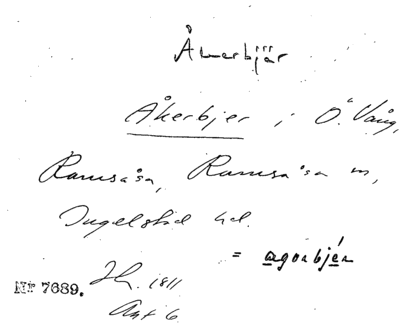 Åkerbjär
Åkerbjer i Ö. Vång,
Ramsåsa, Ramsåsa sn,
Ingelstad hd.
= ægorbjér
Nr 7689.
1811
Akt 6